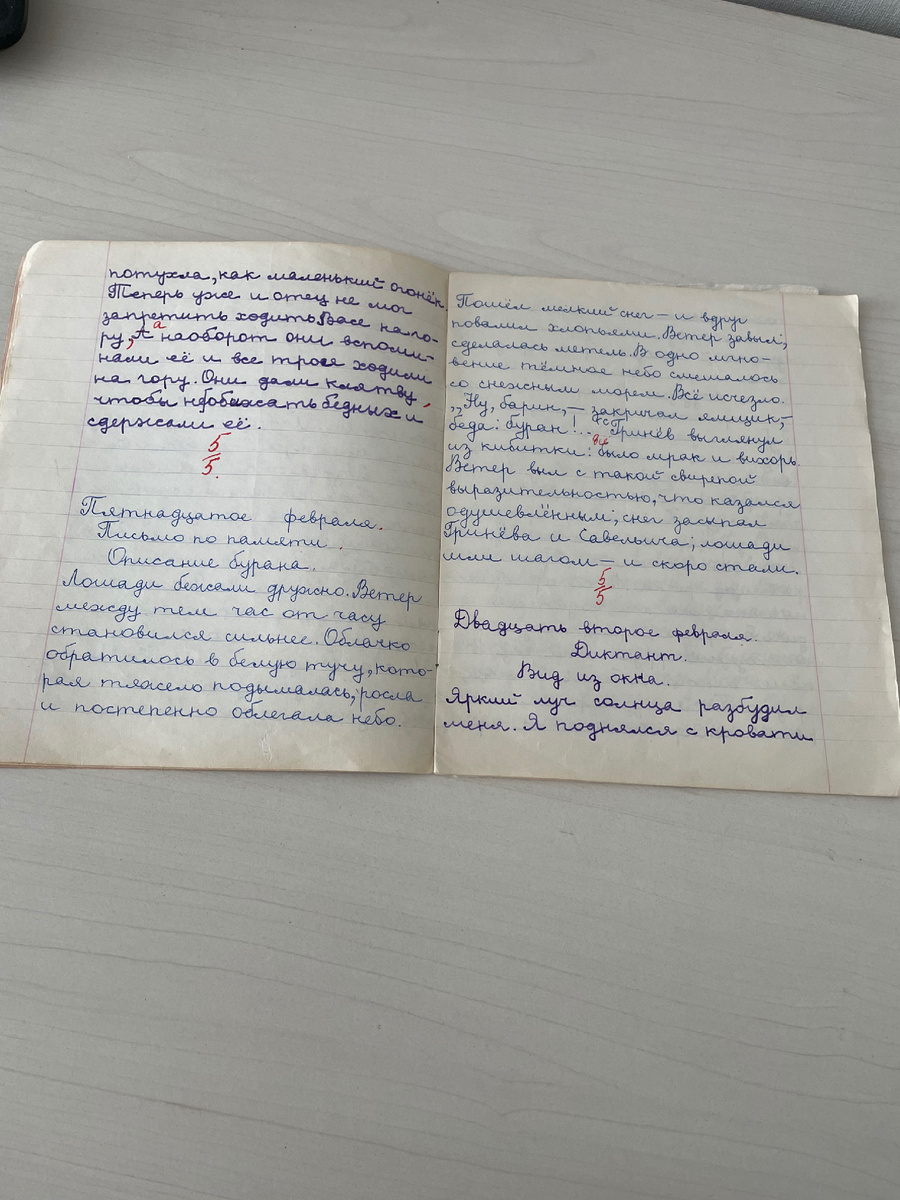 потухла, как маленький огонёк.
Теперь уже и отец не мог
запретить ходить Васе на го-
ру, а наоборот они вспоми-
нали её и все трое ходили
на гору. Они дали клятву,
чтобы не обижать бедных и
сдержали её.
5
5.
Пятнадцатое февраля.
Письмо по памяти.
Описание бурана.
Лошади бежали дружно. Ветер
между тем час от часу
становился сильнее. Облачко
обратилось в белую тучу, кото-
рая тяжело подымалась, росла
и постепенно облегала небо.
Пошёл мелкий снег — и вдруг
повалил хлопьями. Ветер завыл;
сделалась метель. В одно мгно-
вение тёмное небо смешалось
со снежным морем. Всё исчезло.
„Ну, барин, — закричал ямщик, —
беда: буран!.. “ Гринёв выглянул
из кибитки: всё было мрак и вихорь.
Ветер выл с такой свирепой
выразительностью, что казался
одушевлённым; снег засыпал
Гринёва и Савельича; лошади
шли шагом — и скоро стали.
5
5
Двадцать второе февраля.
Диктант.
Вид из окна.
Яркий луч солнца разбудил
меня. Я поднялся с кровати